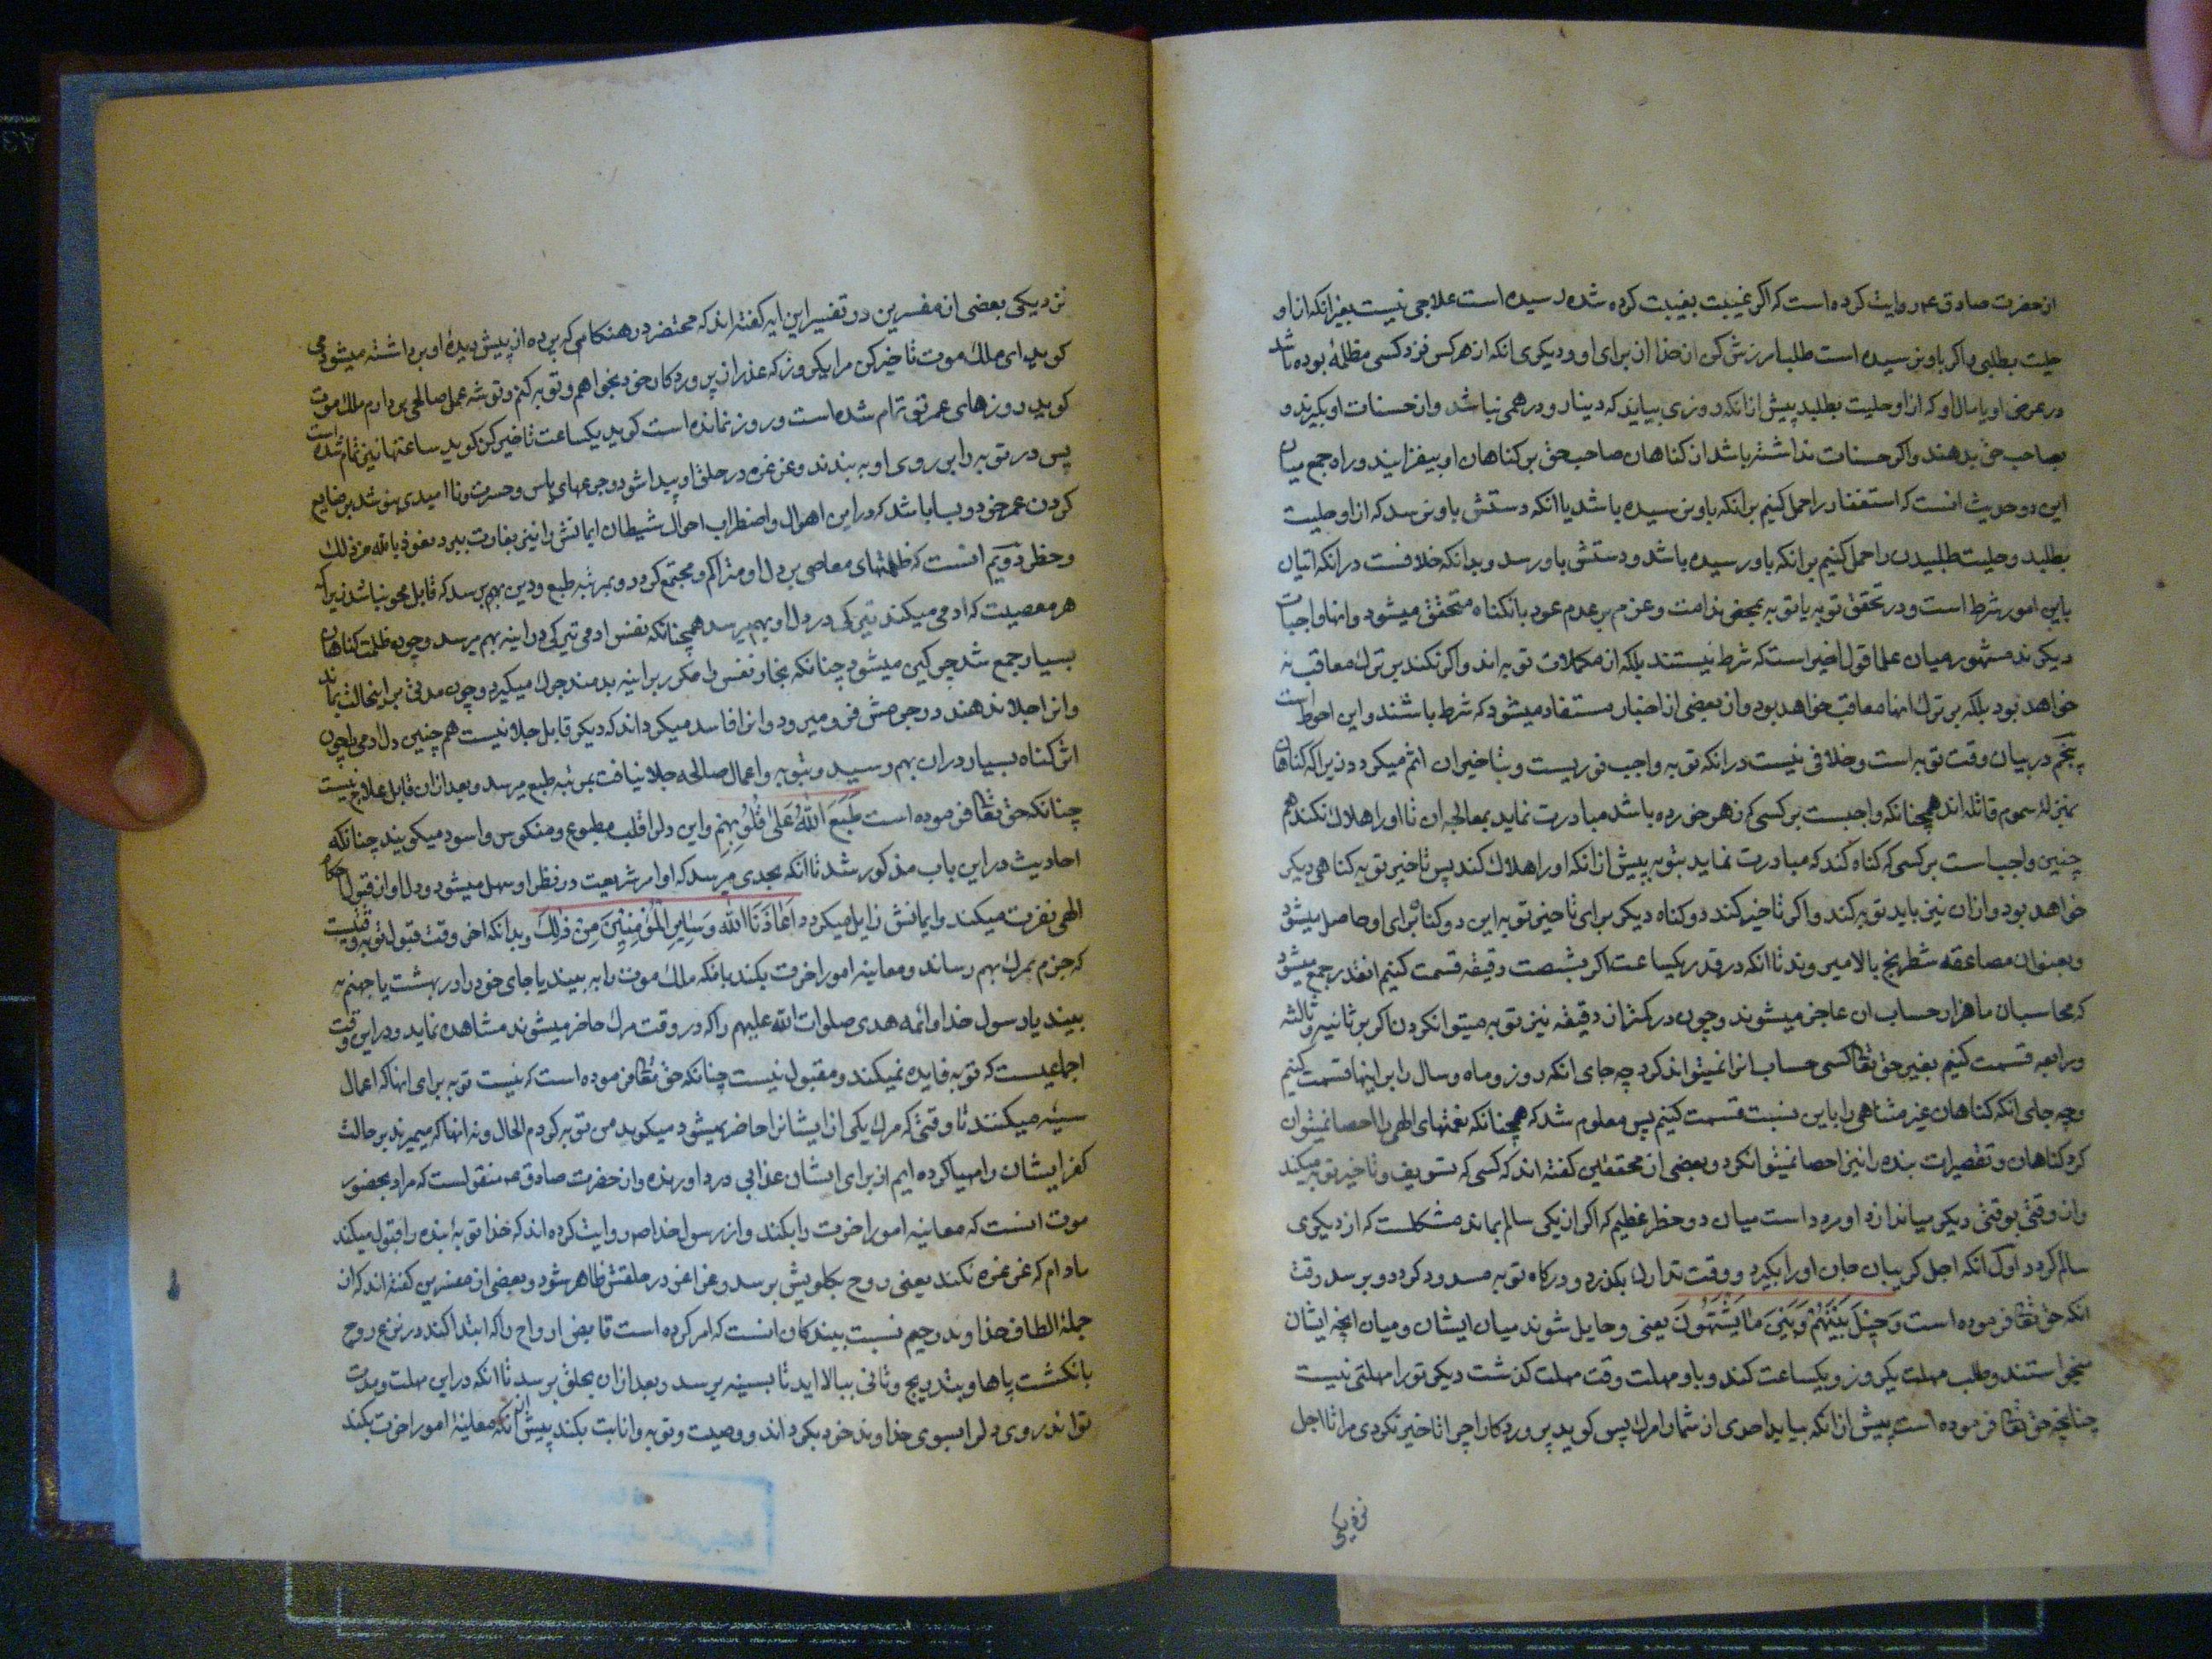 از حضرت صادق ع روایت کرده است که اکر غیبت بغیبت کرده شده رسیده است علاجی نیست بغیر انکه از او
حلیت بطلبی و اکر باو نرسیده است طلب امرزش کن از خدا از برای او و دیکری انکه از هر کس نزد کسی مظلمهٔ بوده باشد
در عرض او یا مال او که از او حلیت بطلبد پیش از انکه روزی بیاید که دینار و درهمی نباشد و از حسنات او بکیرند و
بصاحب حق بدهند و اکر حسنات نداشته باشد از کناهان صاحب حق بر کناهان او بیفزایند و راه جمع میان
این دو حدیث انست که استغفار را حمل کنیم بر انکه باو نرسیده باشد یا انکه دستش باو نرسد که از او حلیت
بطلبد و حلیت طلبیدن را حمل کنیم بر انکه باو رسیده باشد و دستش باو رسد و بدانکه خلافست در انکه اتیان
باین امور شرط است و در تحقق توبه یا توبه بمحض ندامت و عزم بر عدم عود بانکناه متحقق میشود و انها واجبات
دیکرند مشهور میان علما قول اخیر است که شرط نیستند بلکه از مکملات توبه اند و اکر نکند بر ترک معاقب نه
خواهد بود بلکه بر ترک انها معاقب خواهد بود و از بعضی از اخبار مستفاد میشود که شرط باشند و این احوط است
پنجم در بیان وقت توبه است و خلافی نیست در انکه توبه واجب فوریست و بتاخیر ان اثم میکردد زیرا که کناهان
بمنزلهٔ سموم قاتله اند همچنانکه واجبست بر کسی که زهر خورده باشد مبادرت نماید بمعالجه ان تا او را هلاک نکند هم
چنین واجب است بر کسی که کناه کند که مبادرت نماید بتوبه پیش از انکه او را هلاک کند پس تاخیر توبه کناهی دیکر
خواهد بود و از ان نیز باید توبه کند و اکر تاخیر کند دو کناه دیکر برای تاخیر توبه این دو کناه برای او حاصل میشود
و بعنوان مضاعفه شطرنج بالا میروند تا انکه در قدر یکساعت اکر بشصت دقیقه قسمت کنیم انقدر جمع میشود
که محاسبان ماهر از حساب ان عاجز میشوند و چون در کمتر از دقیقه نیز توبه میتوان کردن اکر بر ثانیه و ثالثه
و رابعه قسمت کنیم بغیر حق تعالی کسی حساب انرا نمیتواند کرد چه جای انکه روز و ماه و سال را بر اینها قسمت کنیم
و چه جای انکه کناهان غیر متناهی را باین نسبت قسمت کنیم پس معلوم شد که همچنانکه نعمتهای الهی را احصا نمیتوان
کرد کناهان و تقصیرات بنده را نیز احصا نمیتوان کرد و بعضی از محققین کفته اند که کسی که تسویف و تاخیر توبه میکند
و از وقتی بوقتی دیکر میاندازد او مردد است میان دو خطر عظیم که اکر از یکی سالم بماند مشکلست که از دیکری
سالم کردد اول انکه اجل کریبان جان او را بکیرد و وقت تدارک بکذرد و درکاه توبه مسدود کردد و برسد وقت
انکه حق تعالی فرموده است وَحِیلَ بَیْنَهُمْ وَبَیْنَ مٰا یَشْتَهُونَ یعنی و حایل شوند میان ایشان و میان انچه ایشان
میخواستند و طلب مهلت یکروز و یکساعت کند و باو مهلت وقت مهلت کذشت دیکر تو را مهلتی نیست
چنانچه حق تعالی فرموده است پیش از انکه بیاید احدی از شما را مرک پس کوید پروردکارا چرا تاخیر نکردی مرا تا اجل
نزدیکی
نزدیکی بعضی از مفسرین در تفسیر این ایه کفته اند که محتضر در هنکامی که پرده از پیش دیدهٔ او برداشته میشود می
کوید ای ملک موت تاخیر کن مرا یکروز که عذر از پروردکار خود بخواهم و توبه کنم و توشه عمل صالحی بردارم ملک موت
کوید روزهای عمر تو تمام شده است و روز نمانده است کوید یکساعت تاخیر کن کوید ساعتها نیز تمام شده است
پس در توبه را بر روی او به بندند و غرغره در حلق او پیدا شود و جرعهای یاس و حسرت و نا امیدی بنوشد بر ضایع
کردن عمر خود و بسا باشد که در این اهوال و اضطراب احوال شیطان ایمانش را نیز بغارت ببرد نعوذ بالله من ذلک
و خطر دویم انست که ظلمتهای معاصی بر دل او متراکم و مجتمع کردد و بمرتبه طبع و رین بهم برسد که قابل محو نباشد زیرا که
هر معصیت که ادمی میکند تیرکی در دل او بهم میرسد همچنانکه نفس ادمی تیرکی در اینه بهم میرسد و چون ظلمت کناهان
بسیار جمع شد چرکین میشود چنانکه بخار نفس را مکرر بر اینه بدمند چرک میکیرد و چون مدتی بر اینحالت بماند
و انرا جلا ندهند در جرمش فرو میرود و انرا فاسد میکرداند که دیکر قابل جلا نیست هم چنین دل ادمی را چون
اثر کناه بسیار در ان بهم رسید و بتوبه و اعمال صالحه جلا نیافت بمرتبه طبع میرسد و بعد از ان قابل علاج نیست
چنانکه حق تعالی فرموده است طَبَعَ اللّٰهُ عَلٰی قُلُوبِهِمْ و این دل را قلب مطبوع و منکوس و اسود میکویند چنانکه
احادیث در این باب مذکور شد تا انکه بحدی میرسد که اوامر شریعت در نظر او سهل میشود و دل او از قبول احکام
الهی نفرت میکند و ایمانش زایل میکردد اَعٰاذَنَا اللّٰه وَسٰایِرَ الْمُؤمِنِینَ مِنْ ذٰلِکَ و بدانکه اخر وقت قبول توبه وقتیست
که جزم بمرک بهم رساند و معاینه امور اخرت بکند بانکه ملک موت را به بیند یا جای خود را در بهشت یا جهنم به
بیند یا رسول خدا و ائمه هدی صلوات الله علیهم را که در وقت مرک حاضر میشوند مشاهده نماید و در این وقت
اجماعیست که توبه فایده نمیکند و مقبول نیست چنانکه حق تعالی فرموده است که نیست توبه برای انها که اعمال
سیئه میکنند تا وقتی که مرک یکی از ایشانرا حاضر میشود میکوید من توبه کردم الحال و نه انها که میمیرند بر حالت
کفر ایشان را مهیا کرده ایم از برای ایشان عذابی درد اورنده و از حضرت صادق ع منقولست که مراد بحضور
موت انست که معاینه امور اخرت را بکند و از رسول خدا ص روایت کرده اند که خدا توبهٔ بنده را قبول میکند
مادام که غرغره نکند یعنی روح بکلویش برسد و غراغر در حلقش ظاهر شود و بعضی از مفسرین کفته اند که از
جملهٔ الطاف خداوند رحیم نسبت ببندکان انست که امر کرده است قابض ارواح را که ابتدا کند در نزع روح
بانکشت پاها و بتدریج و تانی ببالا اید تا بسینه برسد و بعد از ان بحلق برسد تا انکه در این مهلت و مدت
تواند روی دل را بسوی خداوند خود بکرداند و وصیت و توبه و انابت بکند پیش از انکه معاینهٔ امور اخرت بکند